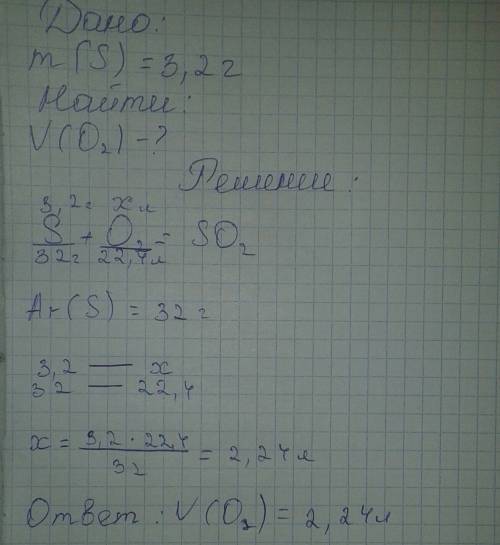 Дано:
m(S) = 3,2 г
Найти:
V(O₂) - ?
Решение:
3,2 г x л
S + O₂ = SO₂
32 г 22,4 л
Ar(S) = 32 г
3,2 — x
32 — 22,4
x = 3,2 · 22,4 / 32 = 2,24 л
Ответ: V(O₂) = 2,24 л